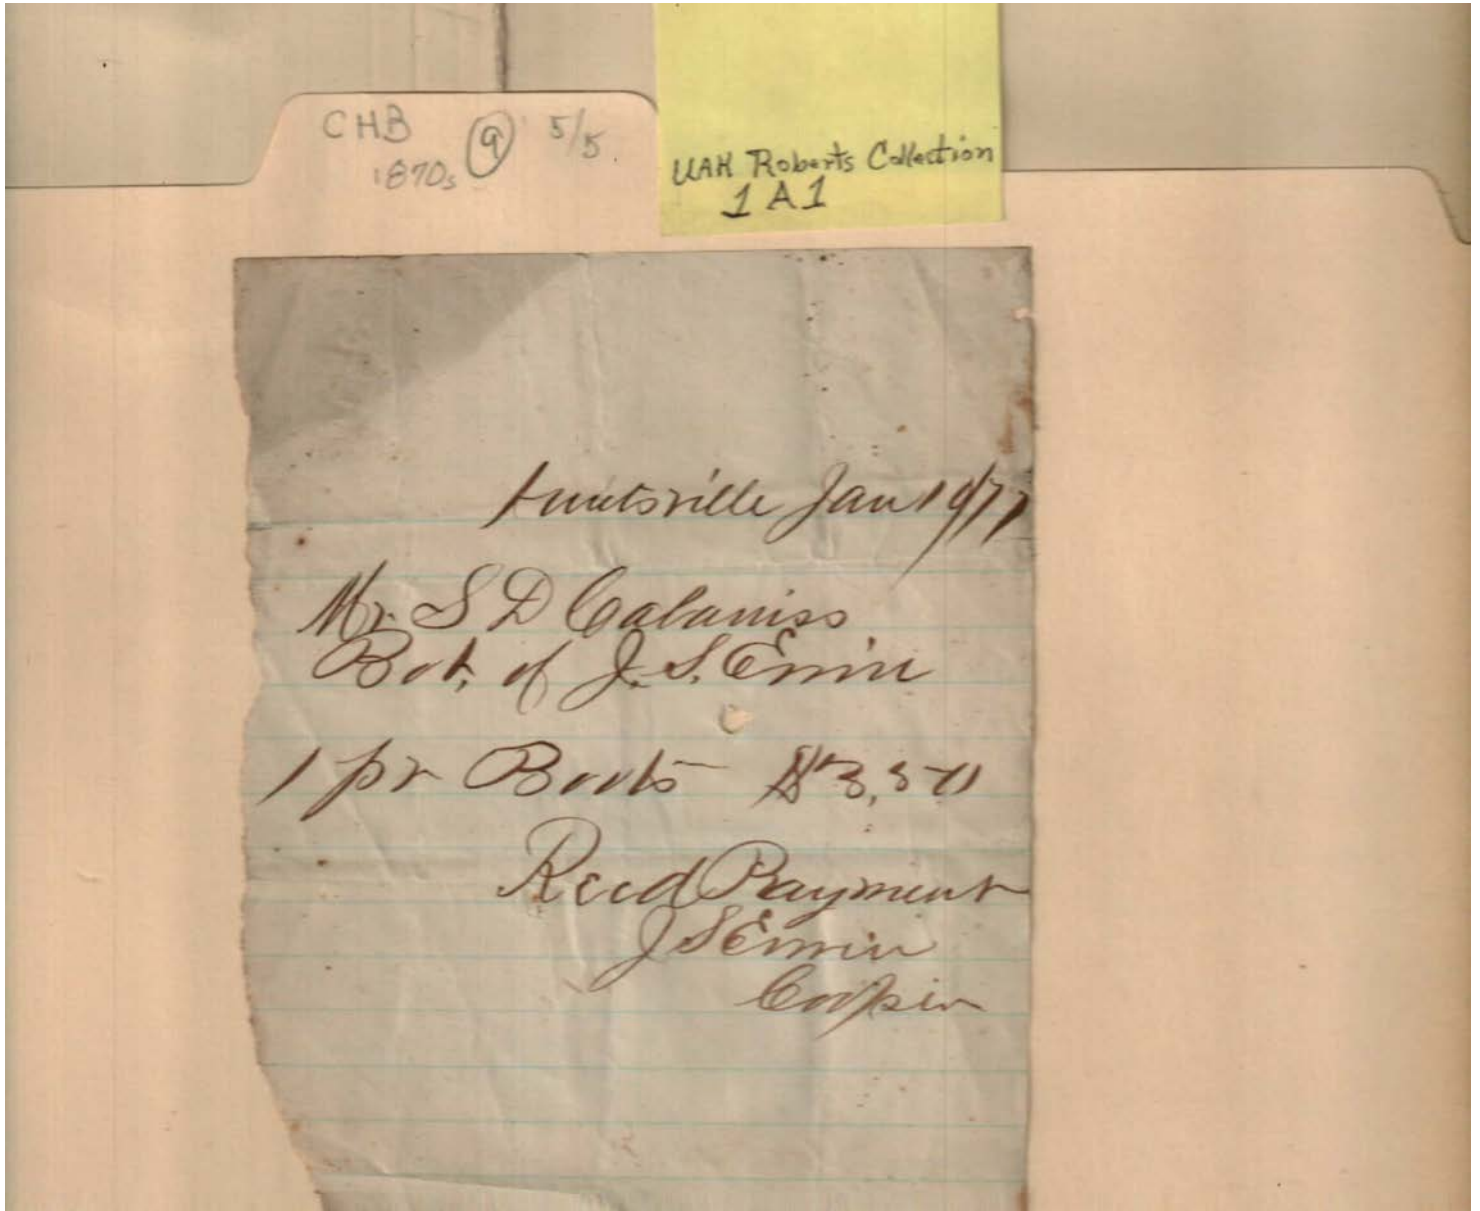 CHB 9 5/5
1870s
UAH Roberts Collection
1 A 1
Huntsville Jan 19/77
Mr. S D Cabaniss
Bot. of J. S. Ervin
1 pr Boots $3,50
Recd Payment
J S Ervin